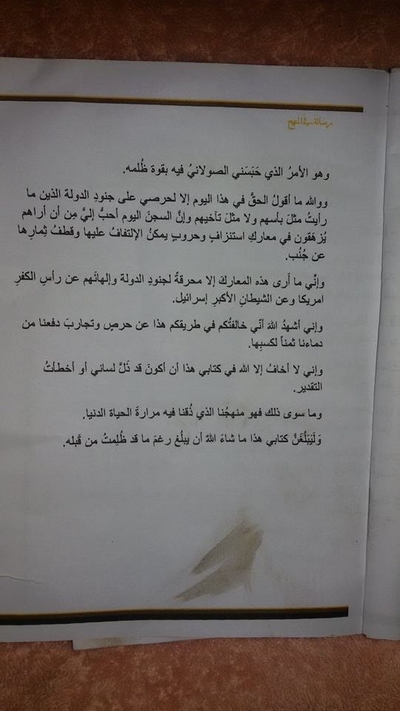 رسالة في المنهج
وهو الأمرُ الذي حَبَسَني الصولانيُ فيه بقوة ظُلمه.
ووالله ما أقولُ الحقُّ في هذا اليوم إلا لحرصي على جنودِ الدولة الذين ما
رأيتُ مثلَ بأسهم ولا مثلَ تأخيهم وإنَّ السجنَ اليوم أحبُّ إليَّ مِن أن أراهم
يُزهَقون في معاركِ استنزافٍ وحروبٍ يمكنُ الإلتفافُ عليها وقطفُ ثِمارِها
عن جُنُب.
وإنِّي ما أرى هذه المعاركَ إلا محرقةً لجنودِ الدولة وإلهائَهم عن رأسِ الكفرِ
امريكا وعن الشيطانِ الأكبرِ إسرائيل.
وإني أشهدُ اللهَ أنّي خالفتُكم في طريقكم هذا عن حرصٍ وتجاربَ دفعنا من
دماءنا ثمناً لكسبِها.
وإني لا أخافُ إلا الله في كتابي هذا أن أكونَ قد ذلَّ لساني أو أخطأتُ
التقدير.
وما سوى ذلك فهو منهجُنا الذي ذُقنا فيه مرارةَ الحياة الدنيا.
وَلَيَبْلُغَنَّ كتابي هذا ما شاءَ اللهُ أن يبلُغَ رغمَ ما قد ظُلِمتُ من قَبله.